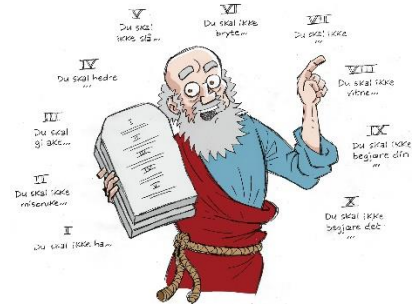 I
Du skal ikke ha...
II
Du skal ikke
misbruke...
III
Du skal
gi akt...
IV
Du skal hedre
...
V
Du skal
ikke slå...
VI
Du skal ikke
bryte...
VII
Du skal ikke
...
VIII
Du skal ikke
vitne...
IX
Du skal ikke
begjære din
...
X
Du skal ikke
begjære det
...